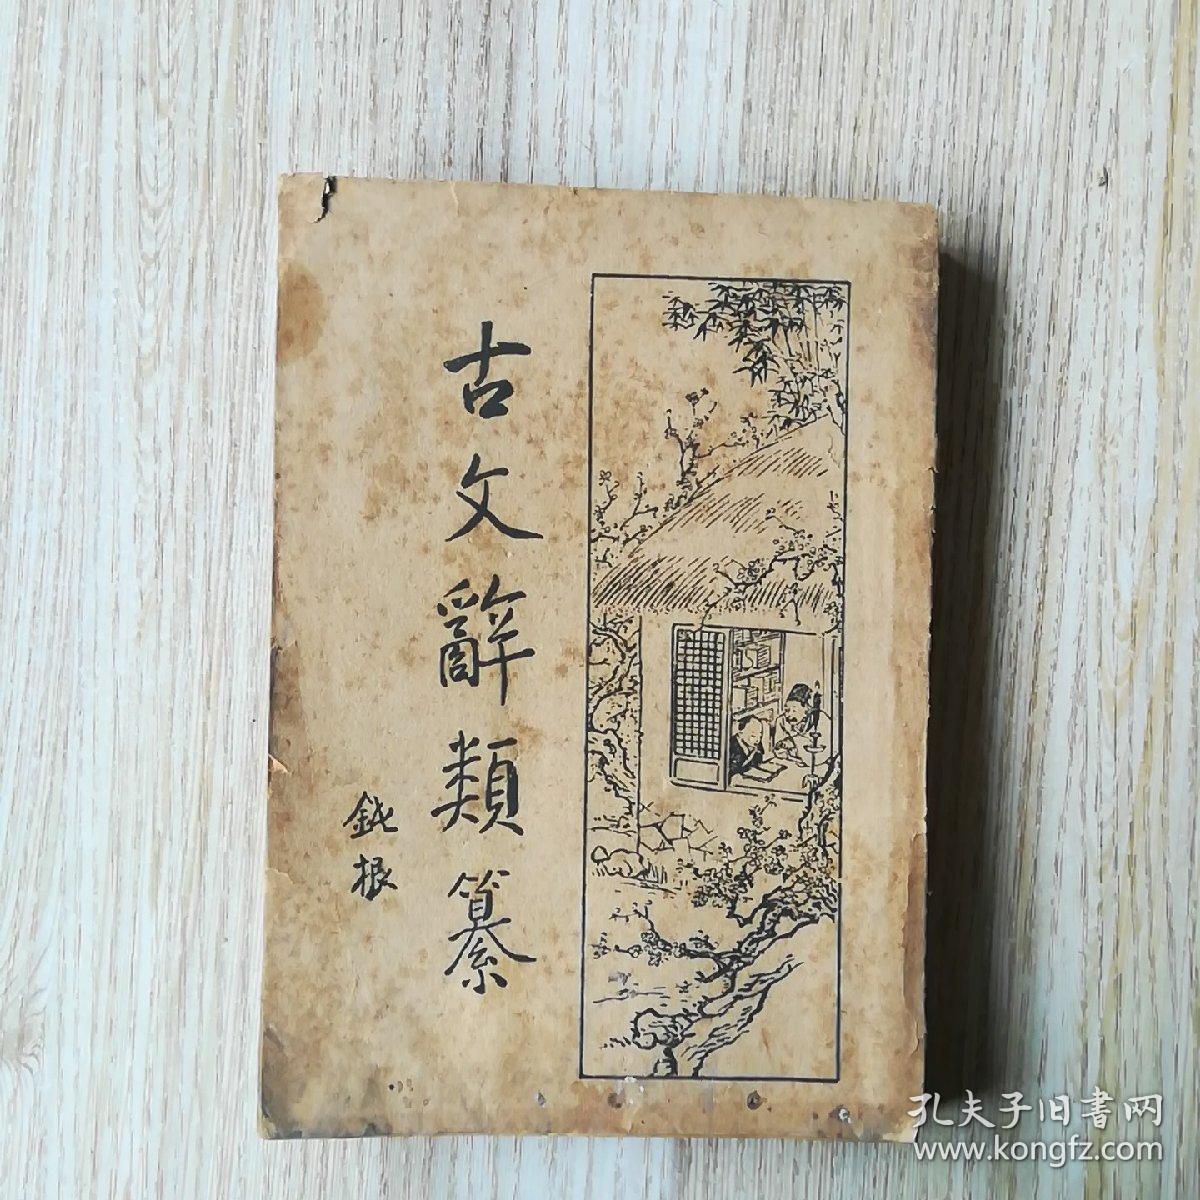 古文辭類纂
鈍根
孔夫子旧書网
www.kongfz.com